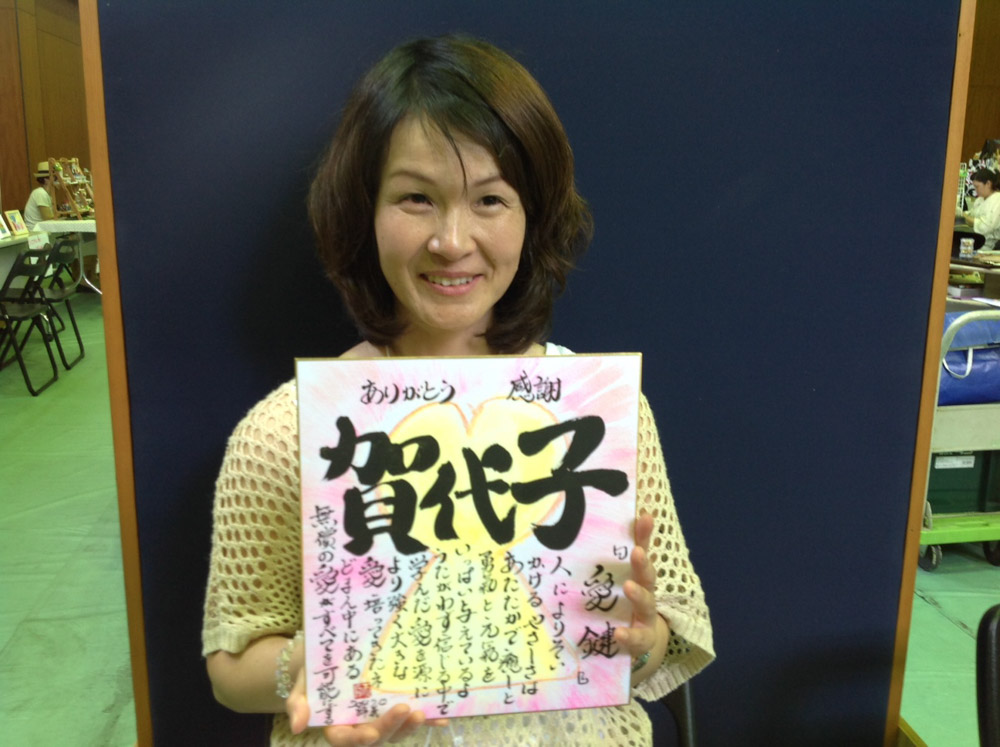 ありがとう　感謝
賀代子
「愛鍵」
人によりそい
かけるやさしさは
あたたかで癒しと
勇気と元気を
いっぱい与えているよ
うたがわず信じる中で
学んだ愛を源に
より強く大きな
愛培ってきた
どまん中にある
無償の愛がすべてを可能にする